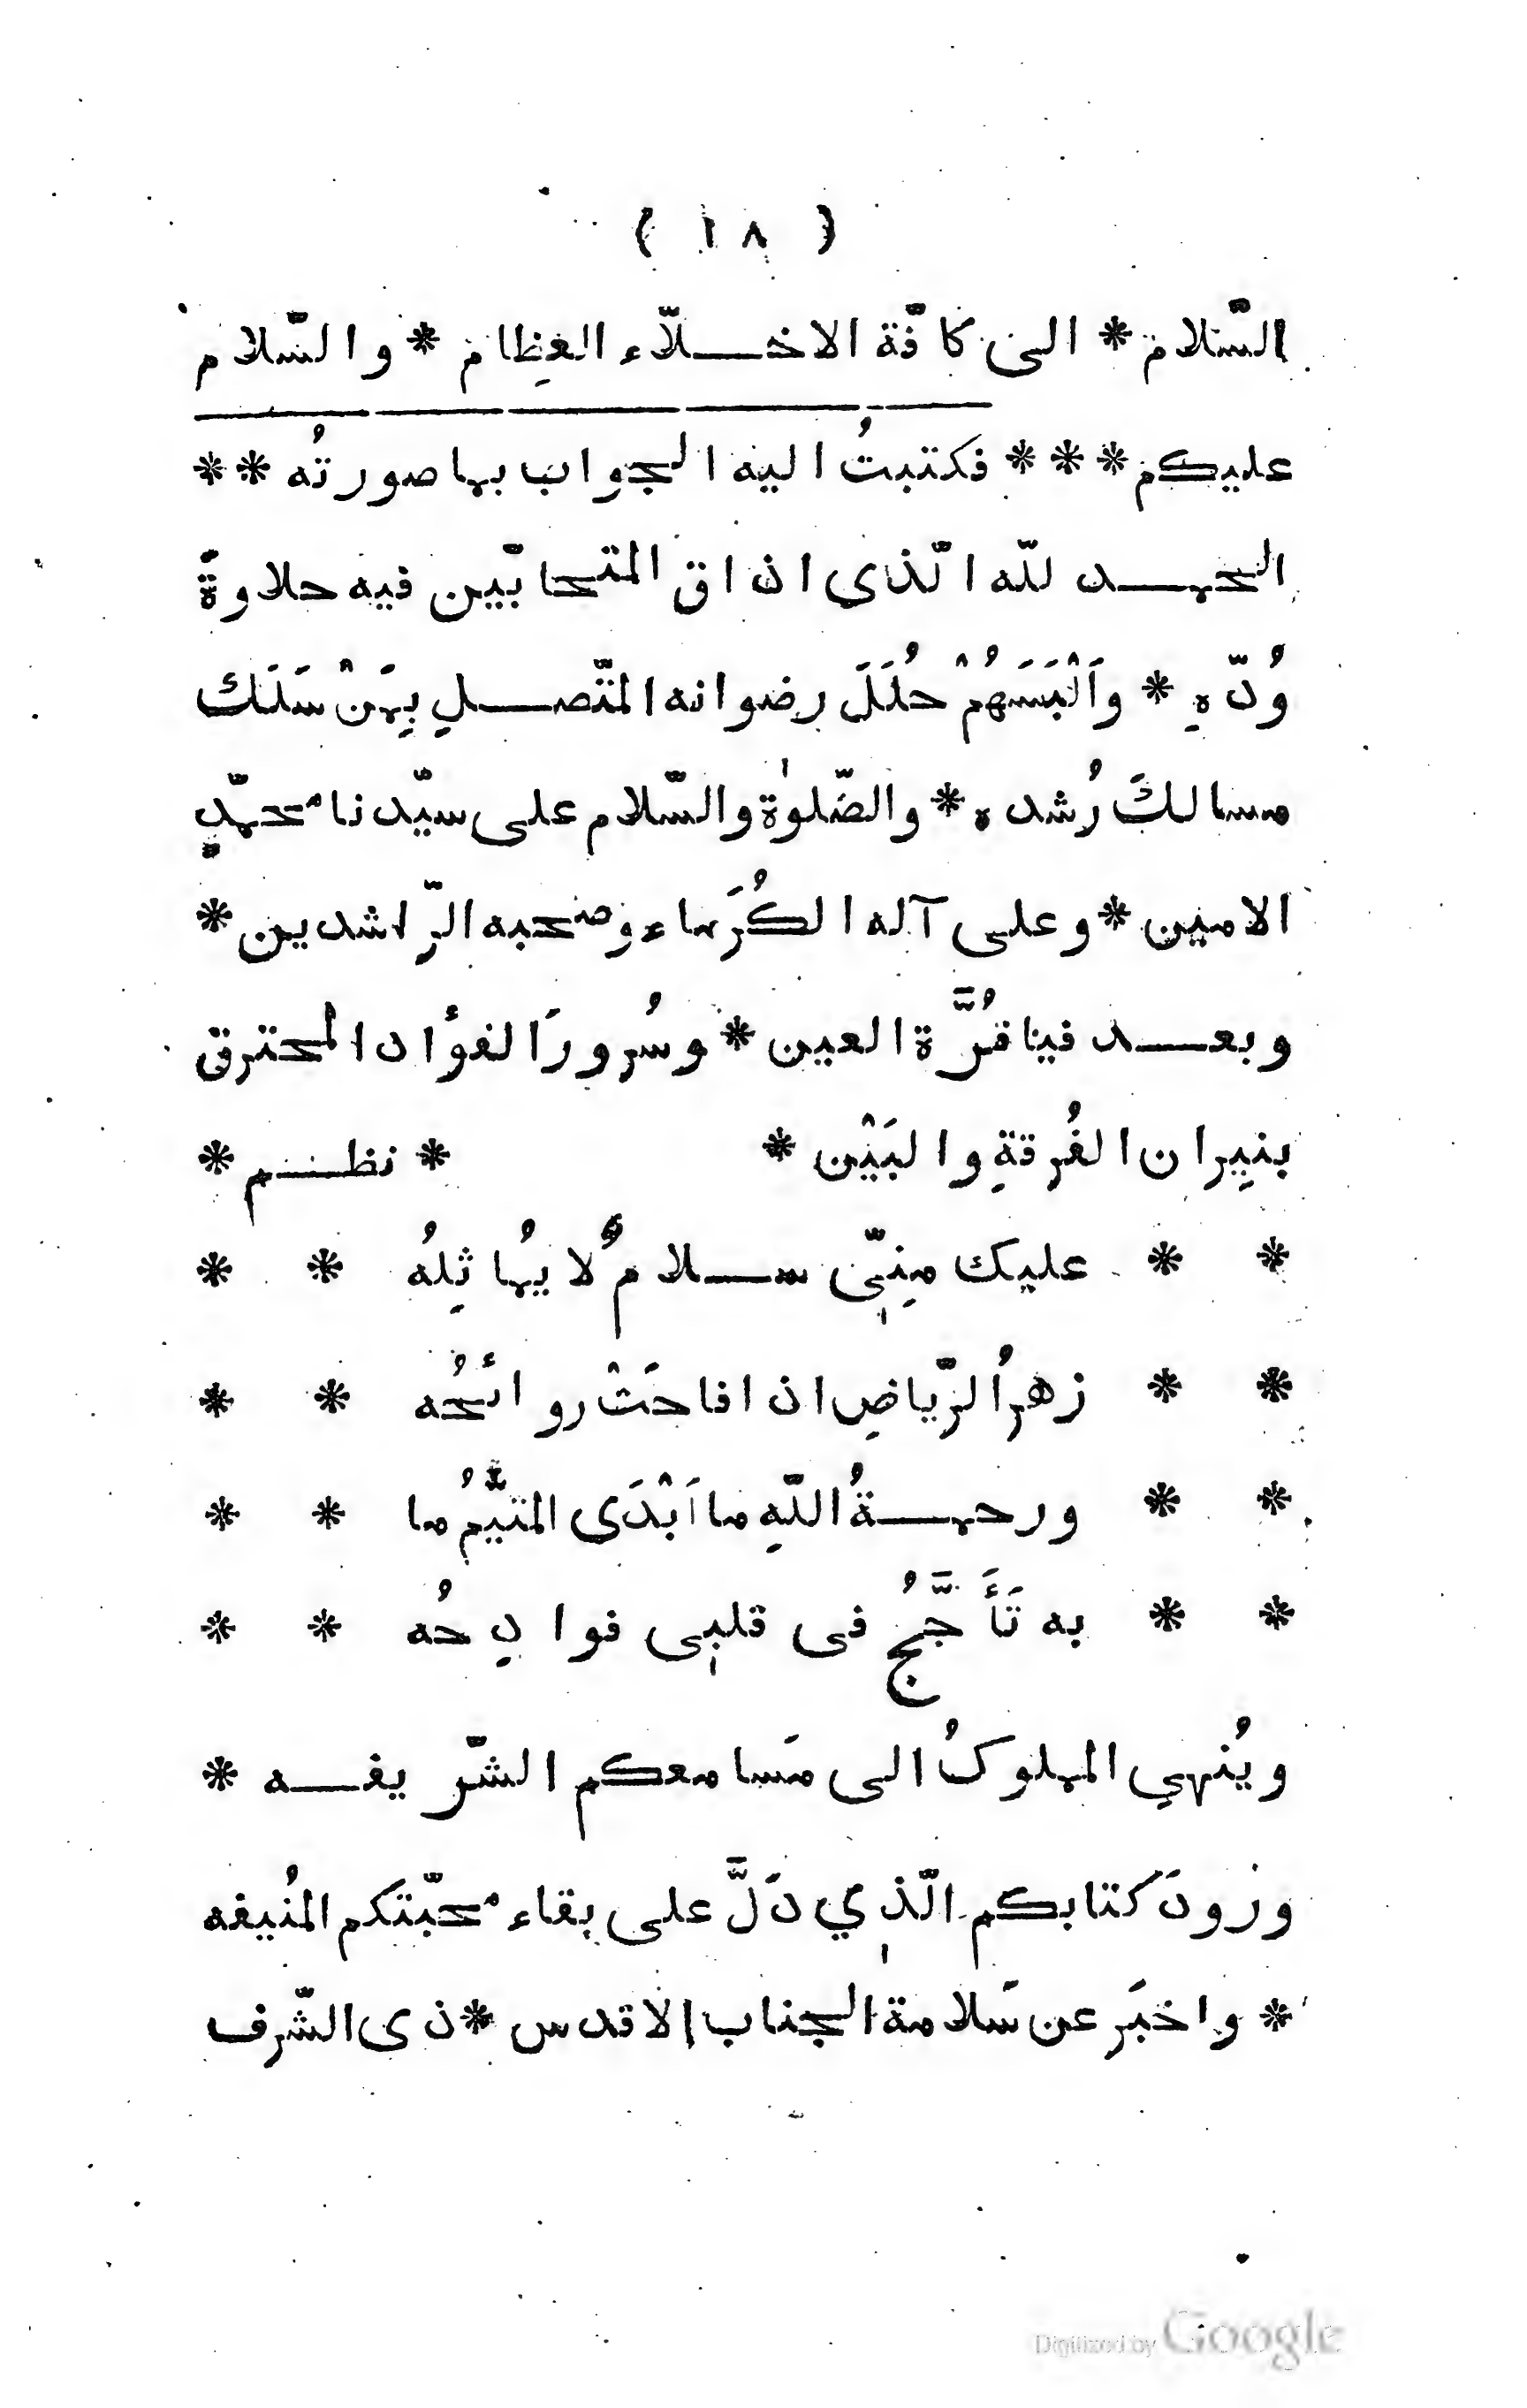 ( ١٨ )
السّلام * الى كافّة الاخلّاء العِظام * والسّلام
عليكم * * * فكتبتُ اليه الجواب بما صورتُه * *
الحمد للّه الّذي اذاق المتحابّين فيه حلاوةَ
وُدّهِ * واَلْبَسَهُمْ حُلَلَ رضوانه المتّصلِ بِمَنْ سَلَكَ
مسالكَ رُشده * والصّلوٰة والسّلام على سيّدنا محمّدٍ
الامين * وعلى آله الكُرَماء وصحبه الرّاشدين *
وبعد فيا قُرَّة العين * وسُرورَ الفؤاد المحترق
بنيِران الفُرقةِ والبَيْن * * نظم *
* * عليك مِنّي سلامٌ لا يُماثِلُه * *
* * زهرُ الرّياضِ اذا فاحَتْ روائحُه * *
* * ورحمةُ اللّهِ ما اَبْدَى المتيَّمُ ما * *
* * به تَأَجَّجُ فى قلبي فوادِحُه * *
ويُنهي المملوكُ الى مَسامعكم الشّريفه *
ورودَ كتابكم الّذي دَلَّ على بقاء محبّتكم المُنيفه
* واخبَر عن سَلامة الجناب الاقدس * ذى الشّرف
Digitized by Google